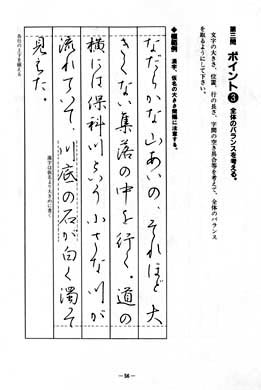 第三問 ポイント❸ 全体のバランスを考える。
文字の大きさ、位置、行の長さ、字間の空き具合等を考えて、全体のバランス
を取るようにして下さい。
◆模範例 漢字、仮名の大きさ間隔に注意する。
なだらかな山あいの、それほど大
きくない集落の中を行く。道の
横には保科川という小さな川が
流れていて、川底の石が白く濁って
見えた。
漢字は仮名より大きめに書く
各行の上下を揃える
— 56 —